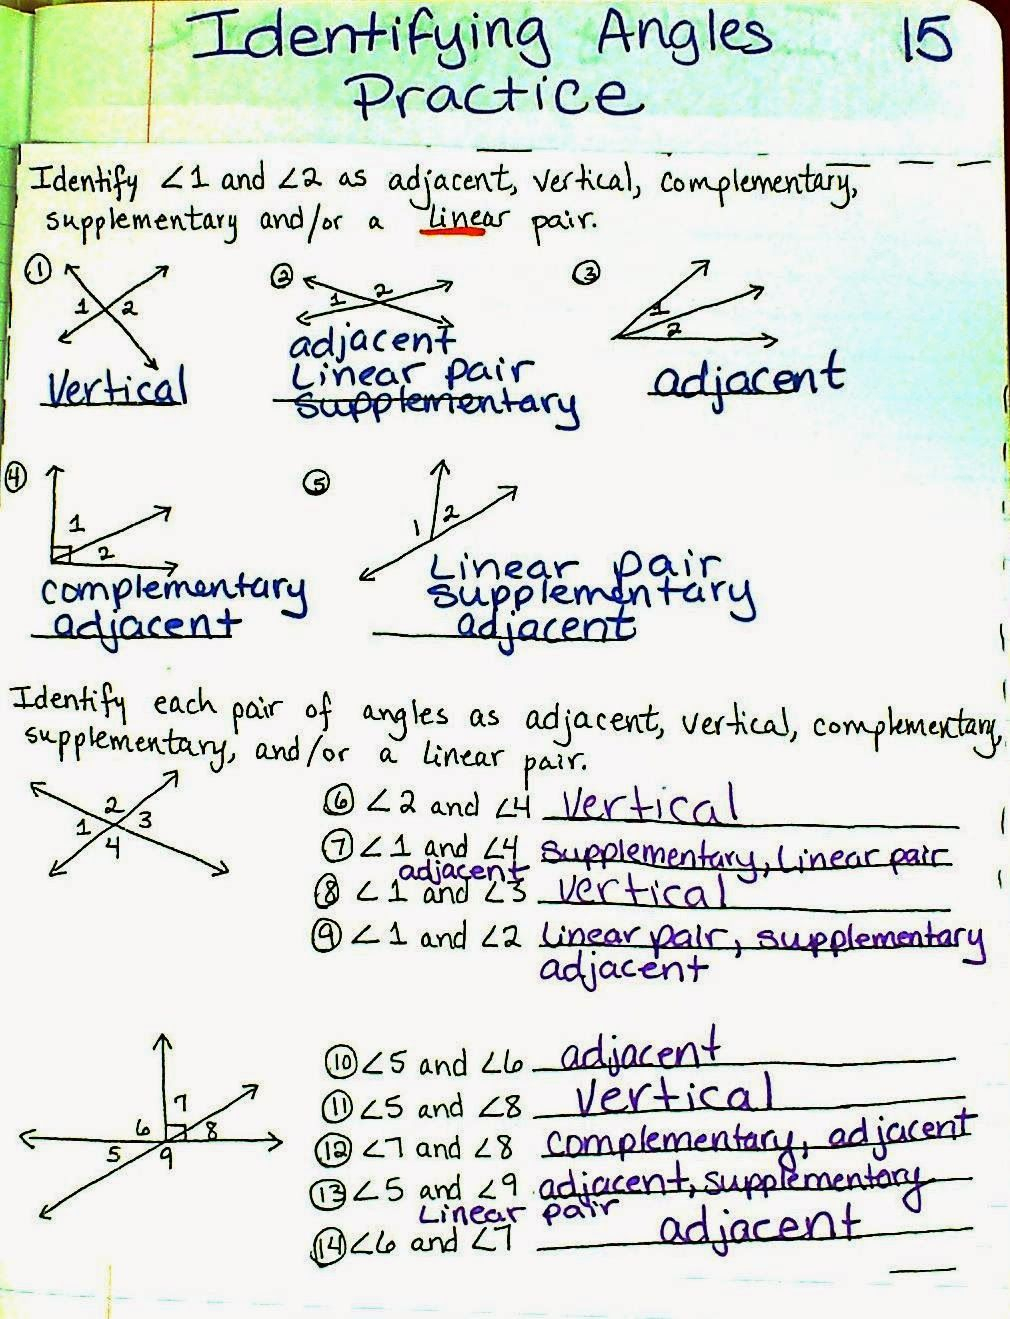 Identifying Angles 15
Practice
Identify ∠1 and ∠2 as adjacent, vertical, complementary,
supplementary and/or a linear pair.
① 1 2
Vertical
② 1 2
adjacent
Linear pair
supplementary
③ 1 2
adjacent
④ 1 2
complementary
adjacent
⑤ 1 2
Linear pair
supplementary
adjacent
Identify each pair of angles as adjacent, vertical, complementary,
supplementary, and/or a linear pair.
2
1 3
4
⑥ ∠2 and ∠4 vertical
⑦ ∠1 and ∠4 supplementary, linear pair
adjacent
⑧ ∠1 and ∠3 vertical
⑨ ∠1 and ∠2 linear pair, supplementary
adjacent
7
6 8
5 9
⑩ ∠5 and ∠6 adjacent
⑪ ∠5 and ∠8 vertical
⑫ ∠7 and ∠8 complementary, adjacent
⑬ ∠5 and ∠9 adjacent, supplementary
Linear pair
⑭ ∠6 and ∠7 adjacent